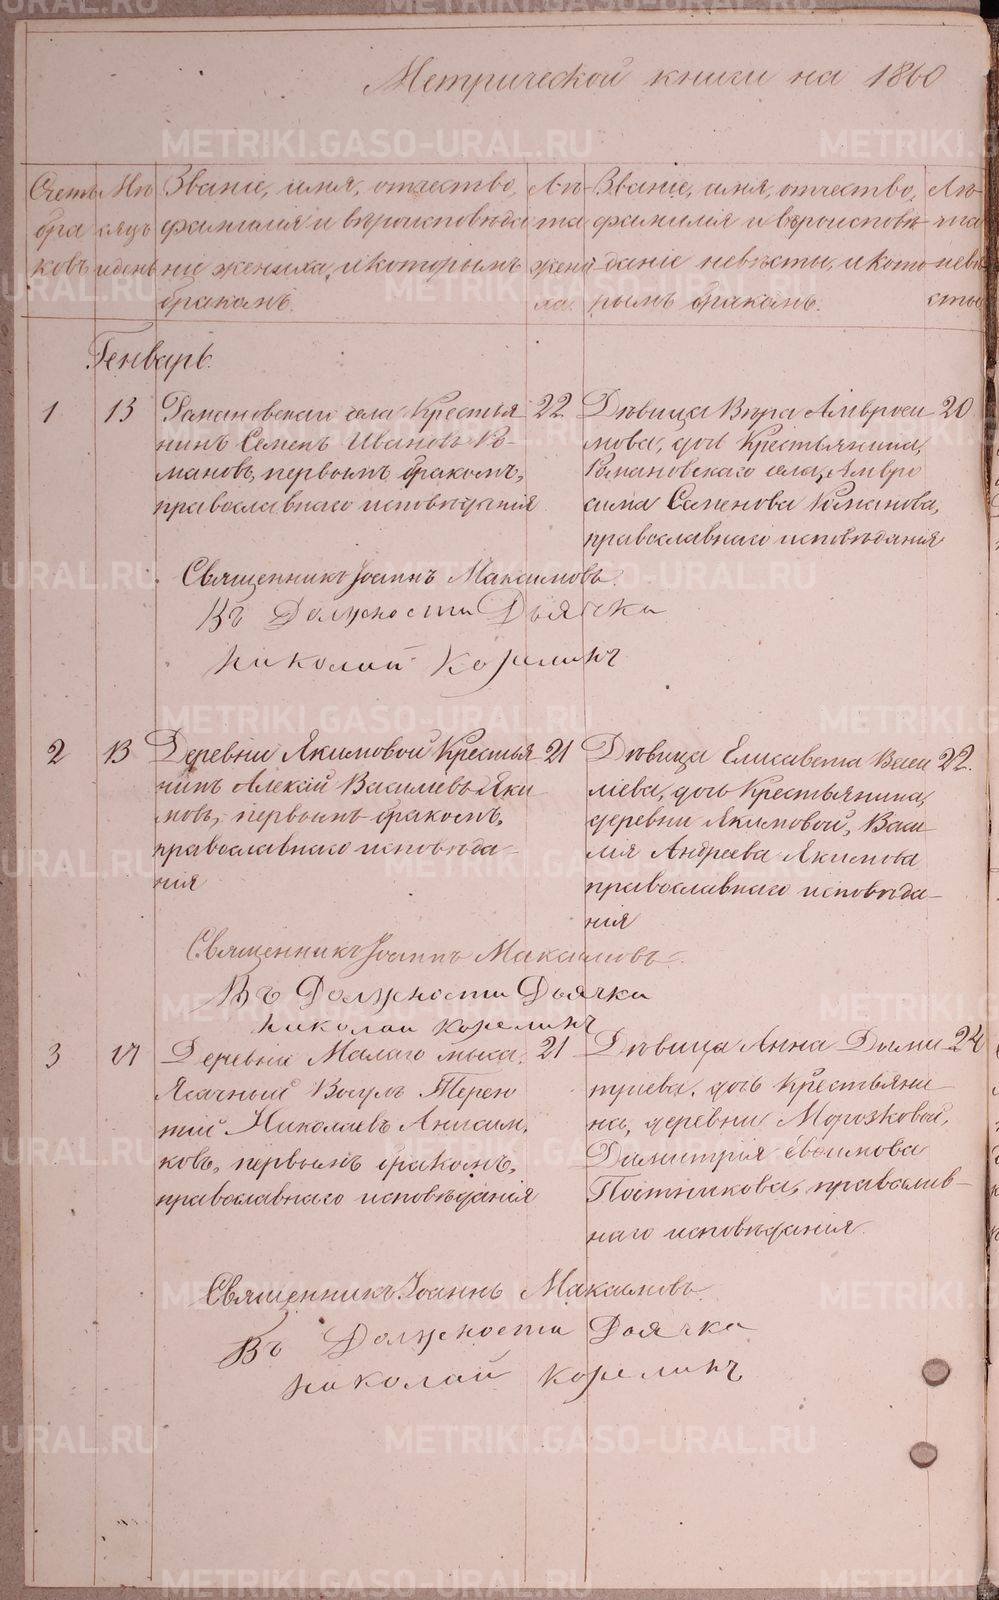 Метрической книги на 1860
Счетъ бра ковъ
Мѣ сяцъ и день
Званіе, имя, отчество, фамилія и вѣроисповѣда ніе жениха, и которымъ бракомъ.
Лѣ та жени ха.
Званіе, имя, отчество, фамилія и вѣроисповѣ даніе невѣсты, и кото рымъ бракомъ.
Лѣ та невѣ сты
Генварь.
1 13 Романовскаго села Крестья 22
нинъ Семенъ Ивановъ Ро-
мановъ, первымъ бракомъ,
православнаго исповѣданія
Дѣвица Вѣра Амвроси 20
мова, дочь Крестьянина,
Романовскаго села, Амвро
сима Семенова Романова,
православнаго исповѣданія
Священникъ Іоаннъ Максимовъ.
Въ Должности Дьячка
Николай Корелинъ
2 13 Деревни Якимовой Крестья 21
нинъ Алексій Васильевъ Яки
мовъ, первымъ бракомъ,
православнаго исповѣда-
нія
Дѣвица Елисавета Васи 22.
ліева, дочь Крестьянина,
деревни Якимовой, Васи-
лія Андреева Якимова
православнаго исповѣда-
нія
Священникъ Іоаннъ Максимовъ.
Въ Должности Дьячка
Николай Корелинъ
3 17 Деревни Малаго мыса, 21
Ясачный Вогулъ Терен
тій Николаевъ Анисим,
ковъ, первымъ бракомъ,
православнаго исповѣданія
Дѣвица Анна Дими 24
тріева, дочь Крестьяни-
на, деревни Морозковой,
Димитрія Евѳимова
Постникова, православ-
наго исповѣданія
Священникъ Іоаннъ Максимовъ.
Въ Должности Дьячка
Николай Корелинъ